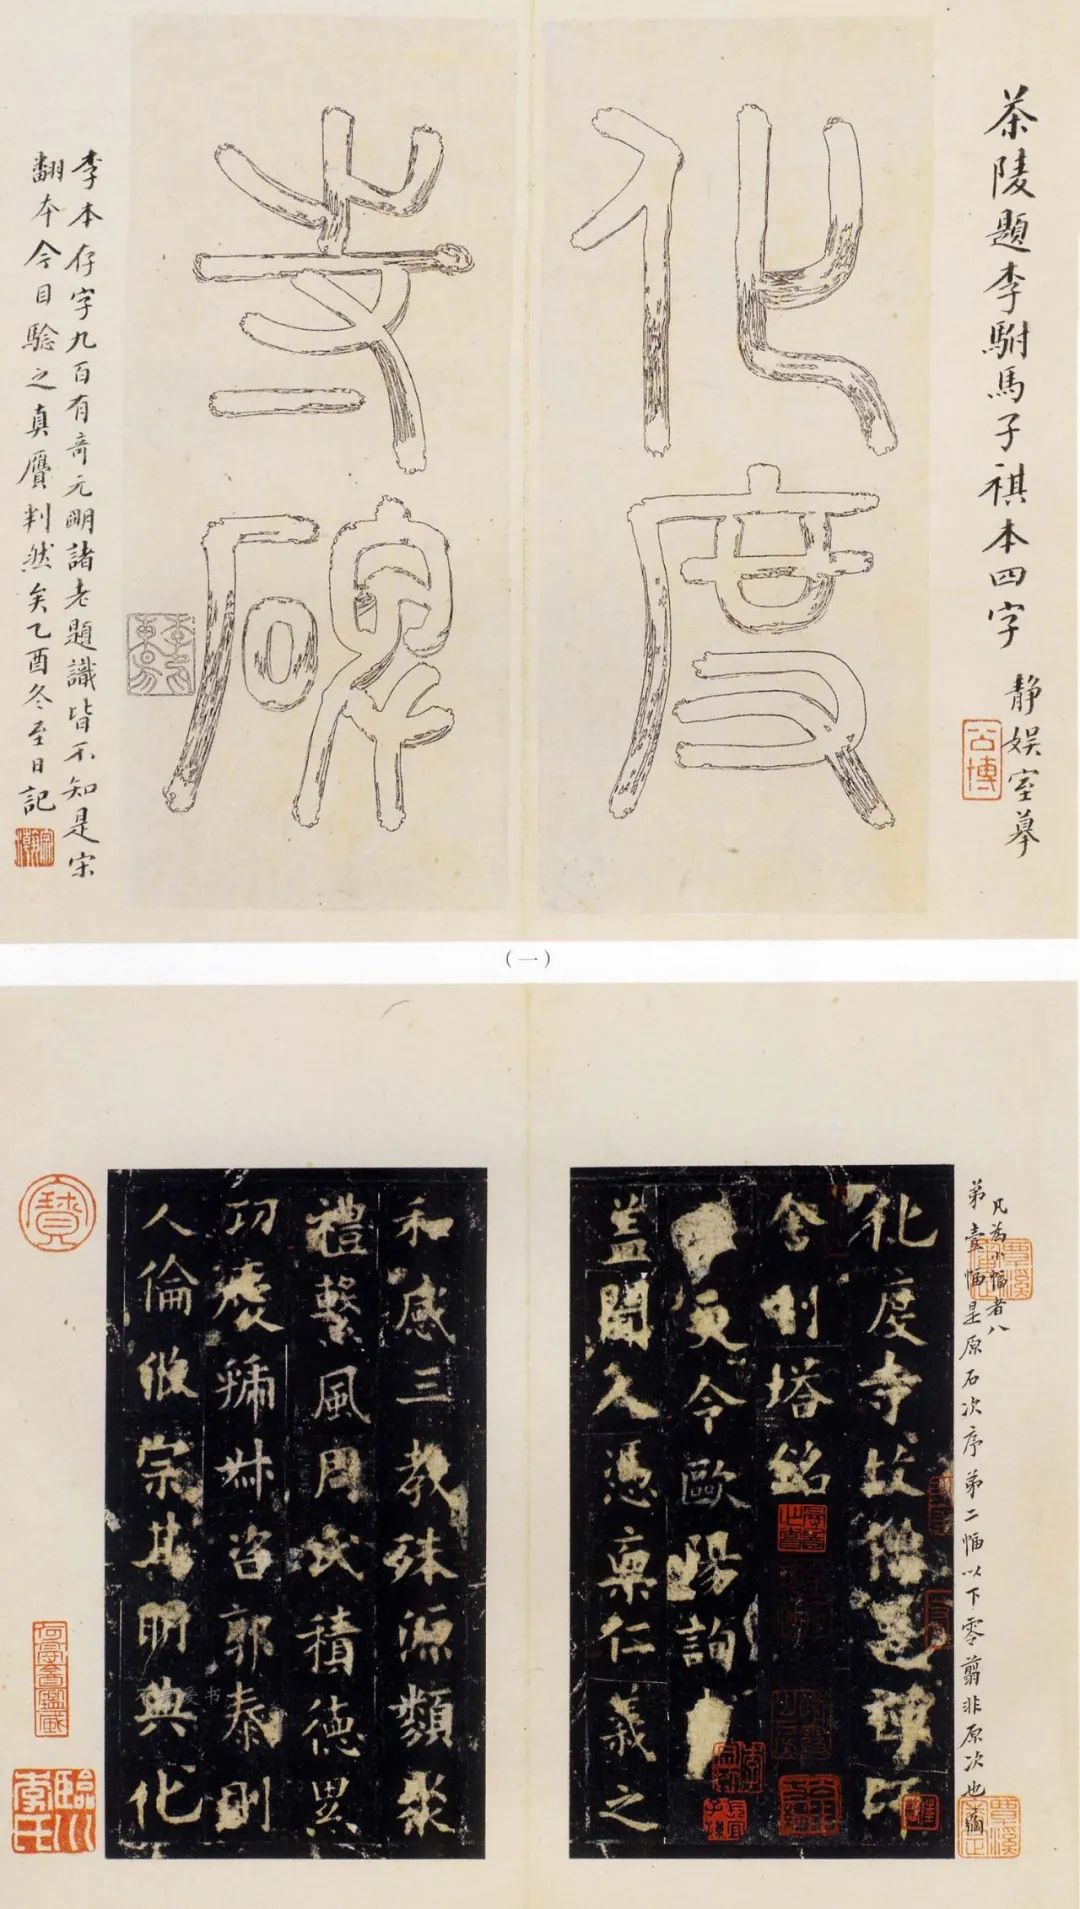 茶陵題李駙馬子祺本四字
靜娛室摹
公博
化度
寺碑
李本存字九百有奇元明諸老題識皆不知是宋
翻本今目驗之真贋判然矣乙酉冬至日記
(一)
凡為小幅者八
第壹幅是原石次序第二幅以下零翦非原次也
覃溪
化度寺故僧邕禪師
舍利塔銘
更令歐陽詢書
蓋聞人憑稟仁義之
和感三教殊源類聚
禮繫風周氏積德異
功瘞稱林咨郭泰則
人倫攸宗其明典化
寶
臨川李氏